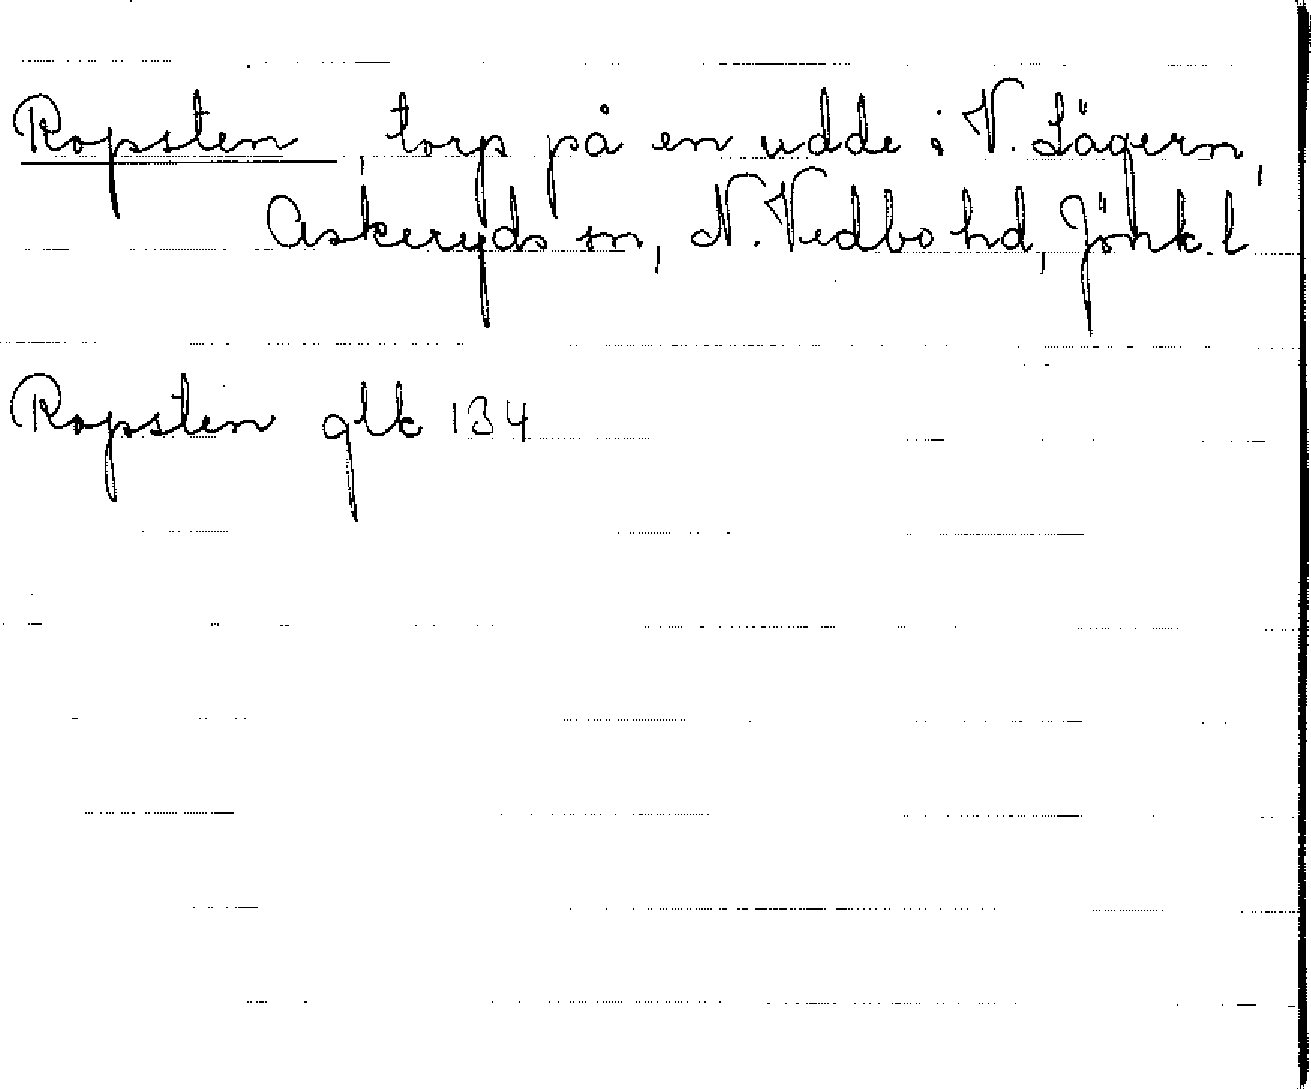 Ropsten, torp på en udde i V. Lägern,
Askeryds sn, N. Vedbo hd, Jönk. l
Ropsten glk 134